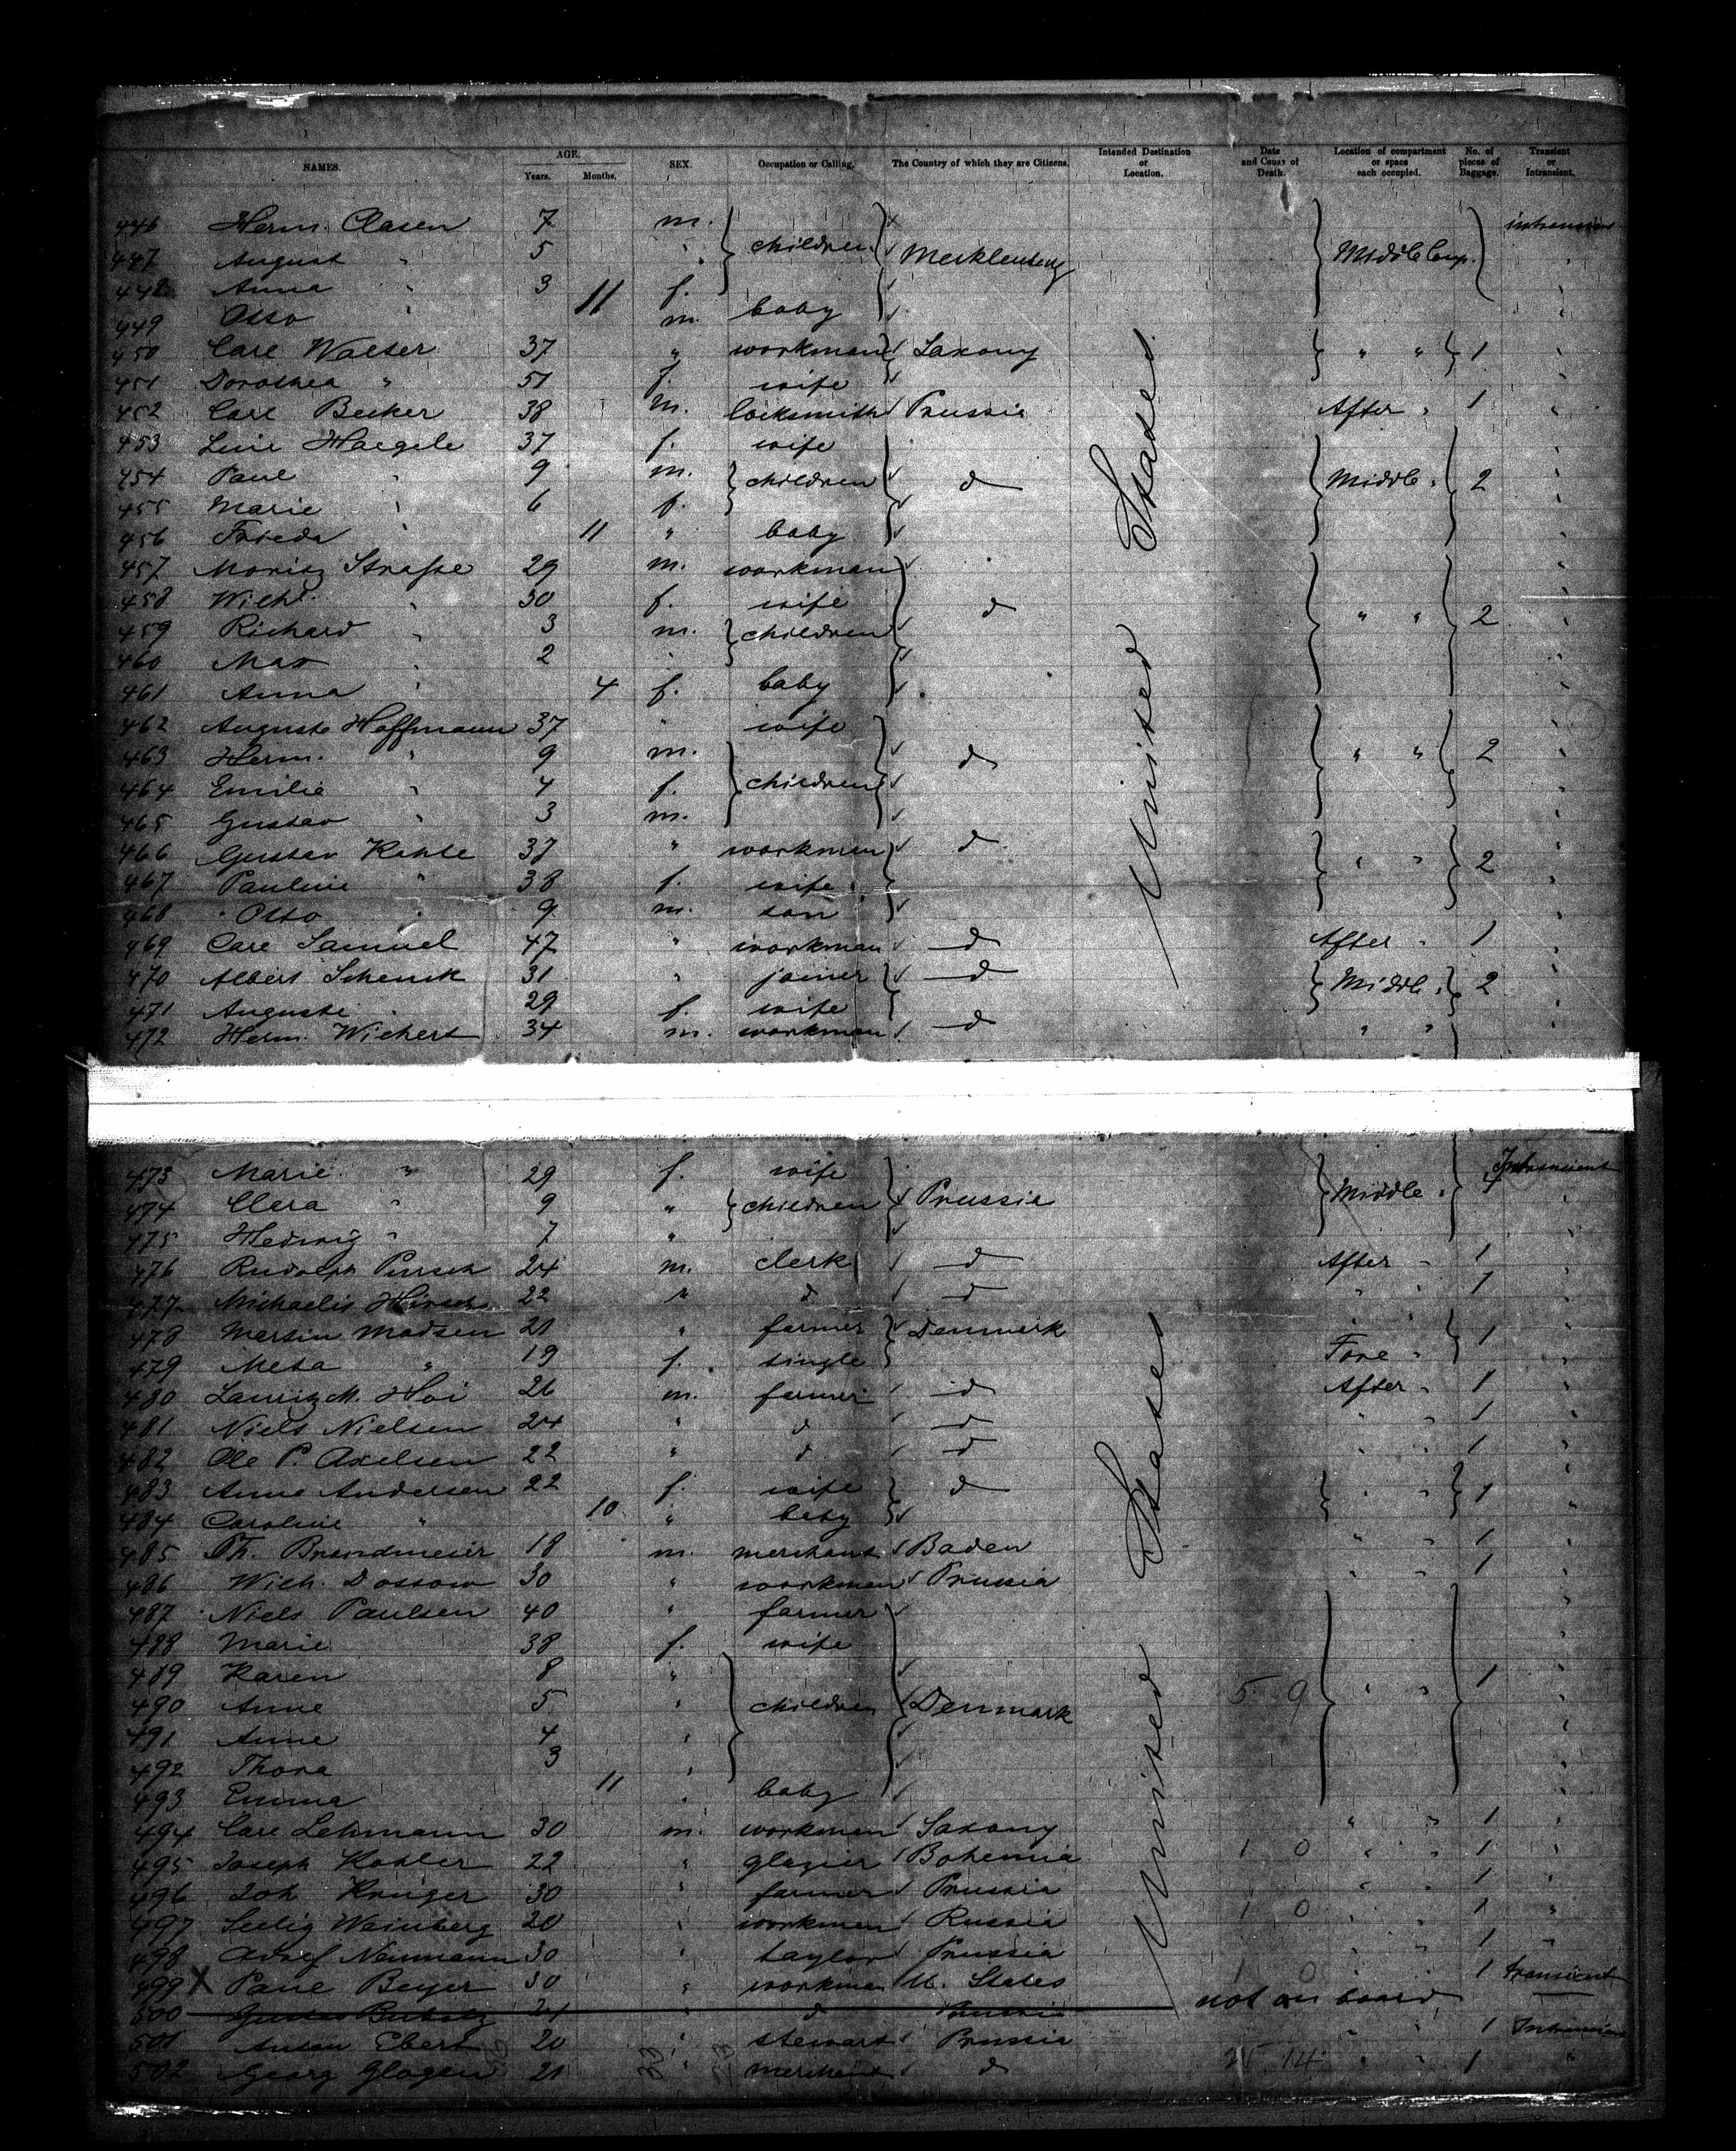 NAMES. AGE. Years. Months. SEX. Occupation or Calling. The Country of which they are Citizens. Intended Destination or Location. Date and Cause of Death. Location of compartment or space each occupied. No. of pieces of Baggage. Transient or Intransient.
446 Herm. Clasen 7 m. children Mecklenburg Middle Comp.
447 August " 5 "
448 Anna " 3 f.
449 Otto " 11 m. baby
450 Carl Walter 37 " workman Saxony " " 1
451 Dorothea " 51 f. wife
452 Carl Becker 38 m. locksmith Prussia After " 1
453 Haegele 37 f. wife
454 Paul " 9 m. children d Middle " 2
455 Marie " 6 f.
456 Frieda " 11 " baby
457 Moritz Straße 29 m. workman
458 Wilh. " 30 f. wife d " " 2
459 Richard " 3 m. children
460 Max " 2 "
461 Anna " 4 f. baby
462 Auguste Hoffmann 37 " wife
463 Herm. " 9 m. children d " " 2
464 Emilie " 4 f.
465 Gustav " 3 m.
466 Gustav Kahle 37 " workman d " " 2
467 Pauline " 38 f. wife
468 Otto " 9 m. son
469 Carl Samuel 47 " workman d After " 1
470 Albert Schenck 31 " joiner d Middle " 2
471 Auguste " 29 f. wife
472 Herm. Wichert 34 m. workman d " "
United States
473 Marie " 29 f. wife Prussia Middle " 4 Intransient
474 Clara " 9 " children
475 Hedwig " 7 "
476 Rudolph 24 m. clerk d After " 1
477 Michaelis Hirsch 22 " d d " " 1
478 Martin Madsen 21 " farmer Denmark 1
479 Meta " 19 f. single Fore "
480 Lauritz M. Hoi 26 m. farmer d After " 1
481 Niels Nielsen 24 " d d " " 1
482 Ole P. Axelsen 22 " d d " " 1
483 Anna Andersen 22 f. wife d " " 1
484 Caroline " 10 " baby
485 Th. Brandmeier 18 m. merchant Baden " " 1
486 Wilh. Dossow 30 " workman Prussia " " 1
487 Niels Paulsen 40 " farmer
488 Marie 38 f. wife
489 Karen 8 " children Denmark " " 1
490 Anne 5 " 5 9
491 Anne 4 "
492 Thora 3 "
493 Emma 11 " baby
494 Carl Lehmann 30 m. workman Saxony " " 1
495 Joseph Kohler 22 " glazier Bohemia 1 0 " " 1
496 Joh Krüger 30 " farmer Prussia " " 1
497 Selig Weinberg 20 " workman Russia 1 0 " " 1
498 Adolf Neumann 30 " taylor Prussia " " 1
499 X Paul Beyer 30 " workman U. States 1 0 1 transient
500 Gustav 24 " d Prussia not on board
501 Anton Ebert 20 " stewart Prussia " " 1 Intransient
502 Georg Glagen 21 " merchant d 14 " " 1
United States